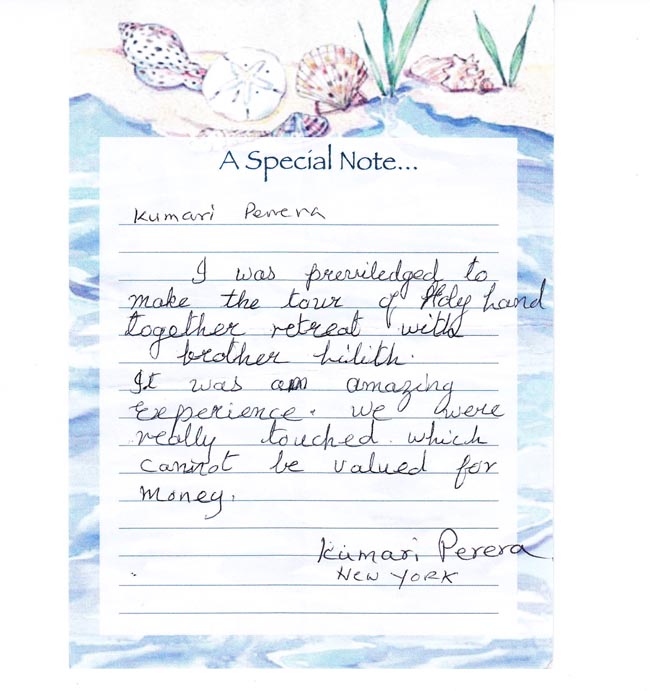 A Special Note...
Kumari Perera
I was previledged to
make the tour of Holy Land
together retreat with
brother Lilith.
It was an amazing
experience. We were
really touched which
cannot be valued for
money.
Kumari Perera
NEW YORK